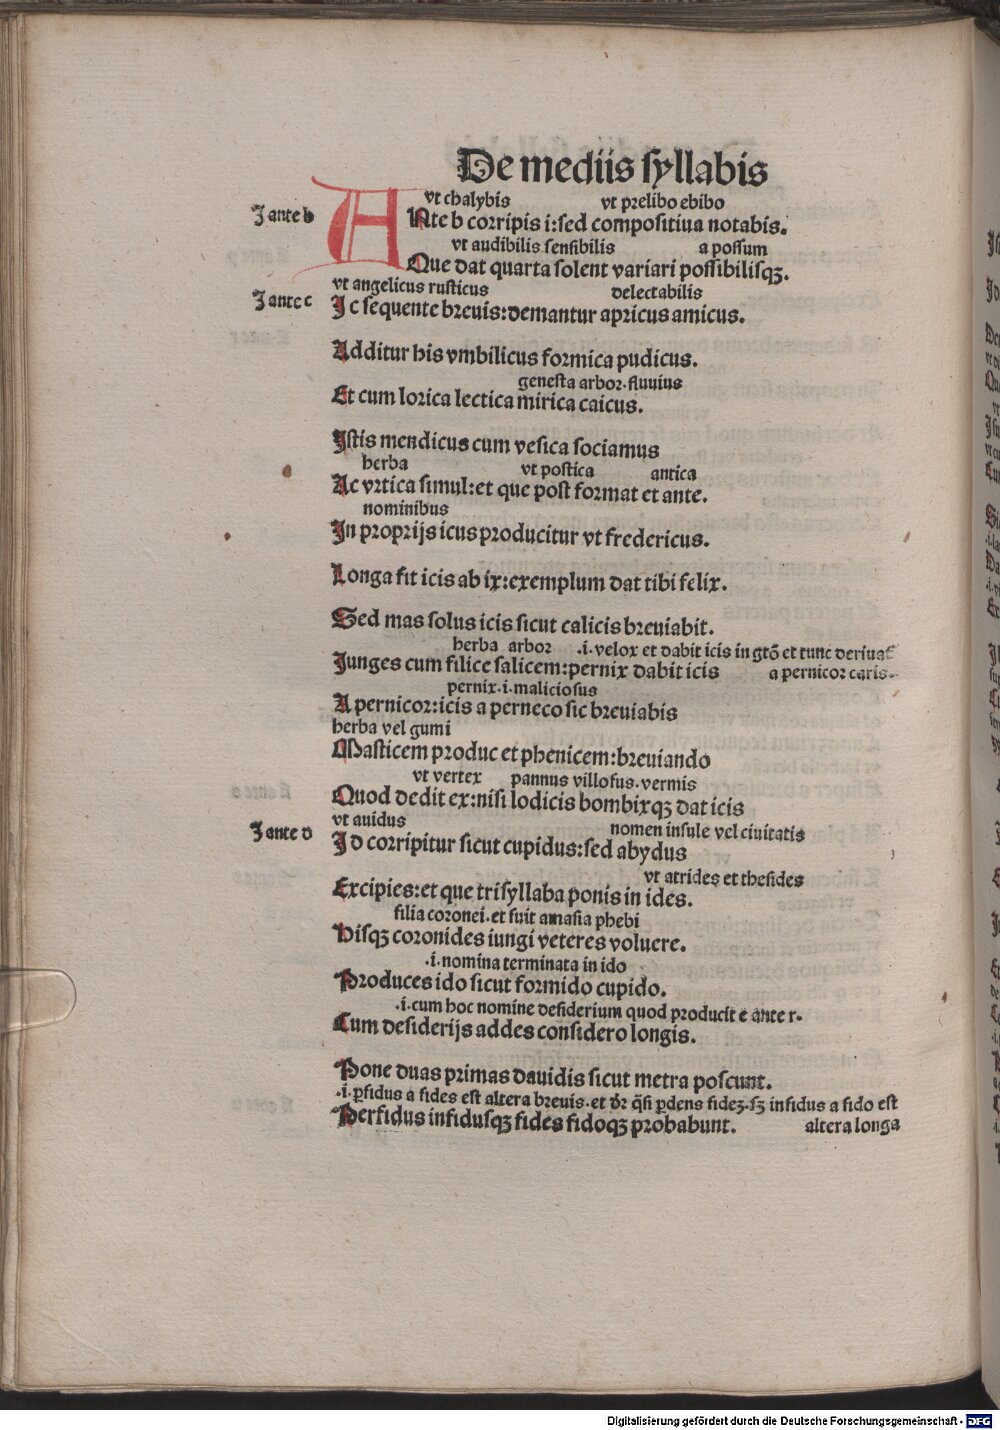 De mediis syllabis
vt chalybis vt prelibo ebibo
I ante b
ANte b corripis i: sed compositiua notabis.
vt audibilis sensibilis a possum
Que dat quarta solent variari possibilisqꝫ.
vt angelicus rusticus delectabilis
I ante c
Ic sequente breuis: demantur apricus amicus.
Additur his vmbilicus formica pudicus.
genesta arbor. fluuius
Et cum lorica lectica mirica caicus.
Istis mendicus cum vesica sociamus
herba vt postica antica
Ac vrtica simul: et que post format et ante.
nominibus
In proprijs icus producitur vt fredericus.
Longa fit icis ab ix: exemplum dat tibi felix.
Sed mas solus icis sicut calicis breuiabit.
herba arbor .i. velox et dabit icis in gtō et tunc deriuat̄
Iunges cum filice salicem: pernix dabit icis a pernicor caris.
pernix .i. maliciosus
A pernicor: icis a perneco sic breuiabis
herba vel gumi
Masticem produc et phenicem: breuiando
vt vertex pannus villosus. vermis
Quod dedit ex: nisi lodicis bombixqꝫ dat icis
vt auidus nomen insule vel ciuitatis
I ante d
Id corripitur sicut cupidus: sed abydus
vt atrides et thesides
Excipies: et que trisyllaba ponis in ides.
filia coronei. et fuit amasia phebi
Hisqꝫ coronides iungi veteres voluere.
.i. nomina terminata in ido
Produces ido sicut formido cupido.
.i. cum hoc nomine desiderium quod producit e ante r.
Cum desiderijs addes considero longis.
Pone duas primas dauidis sicut metra poscunt.
.i. ꝑfidus a fides est altera breuis. et dr̄ q̄si ꝑdens fideꝫ. sꝫ infidus a fido est
Perfidus infidusqꝫ fides fidoqꝫ probabunt. altera longa
Digitalisierung gefördert durch die Deutsche Forschungsgemeinschaft - DFG